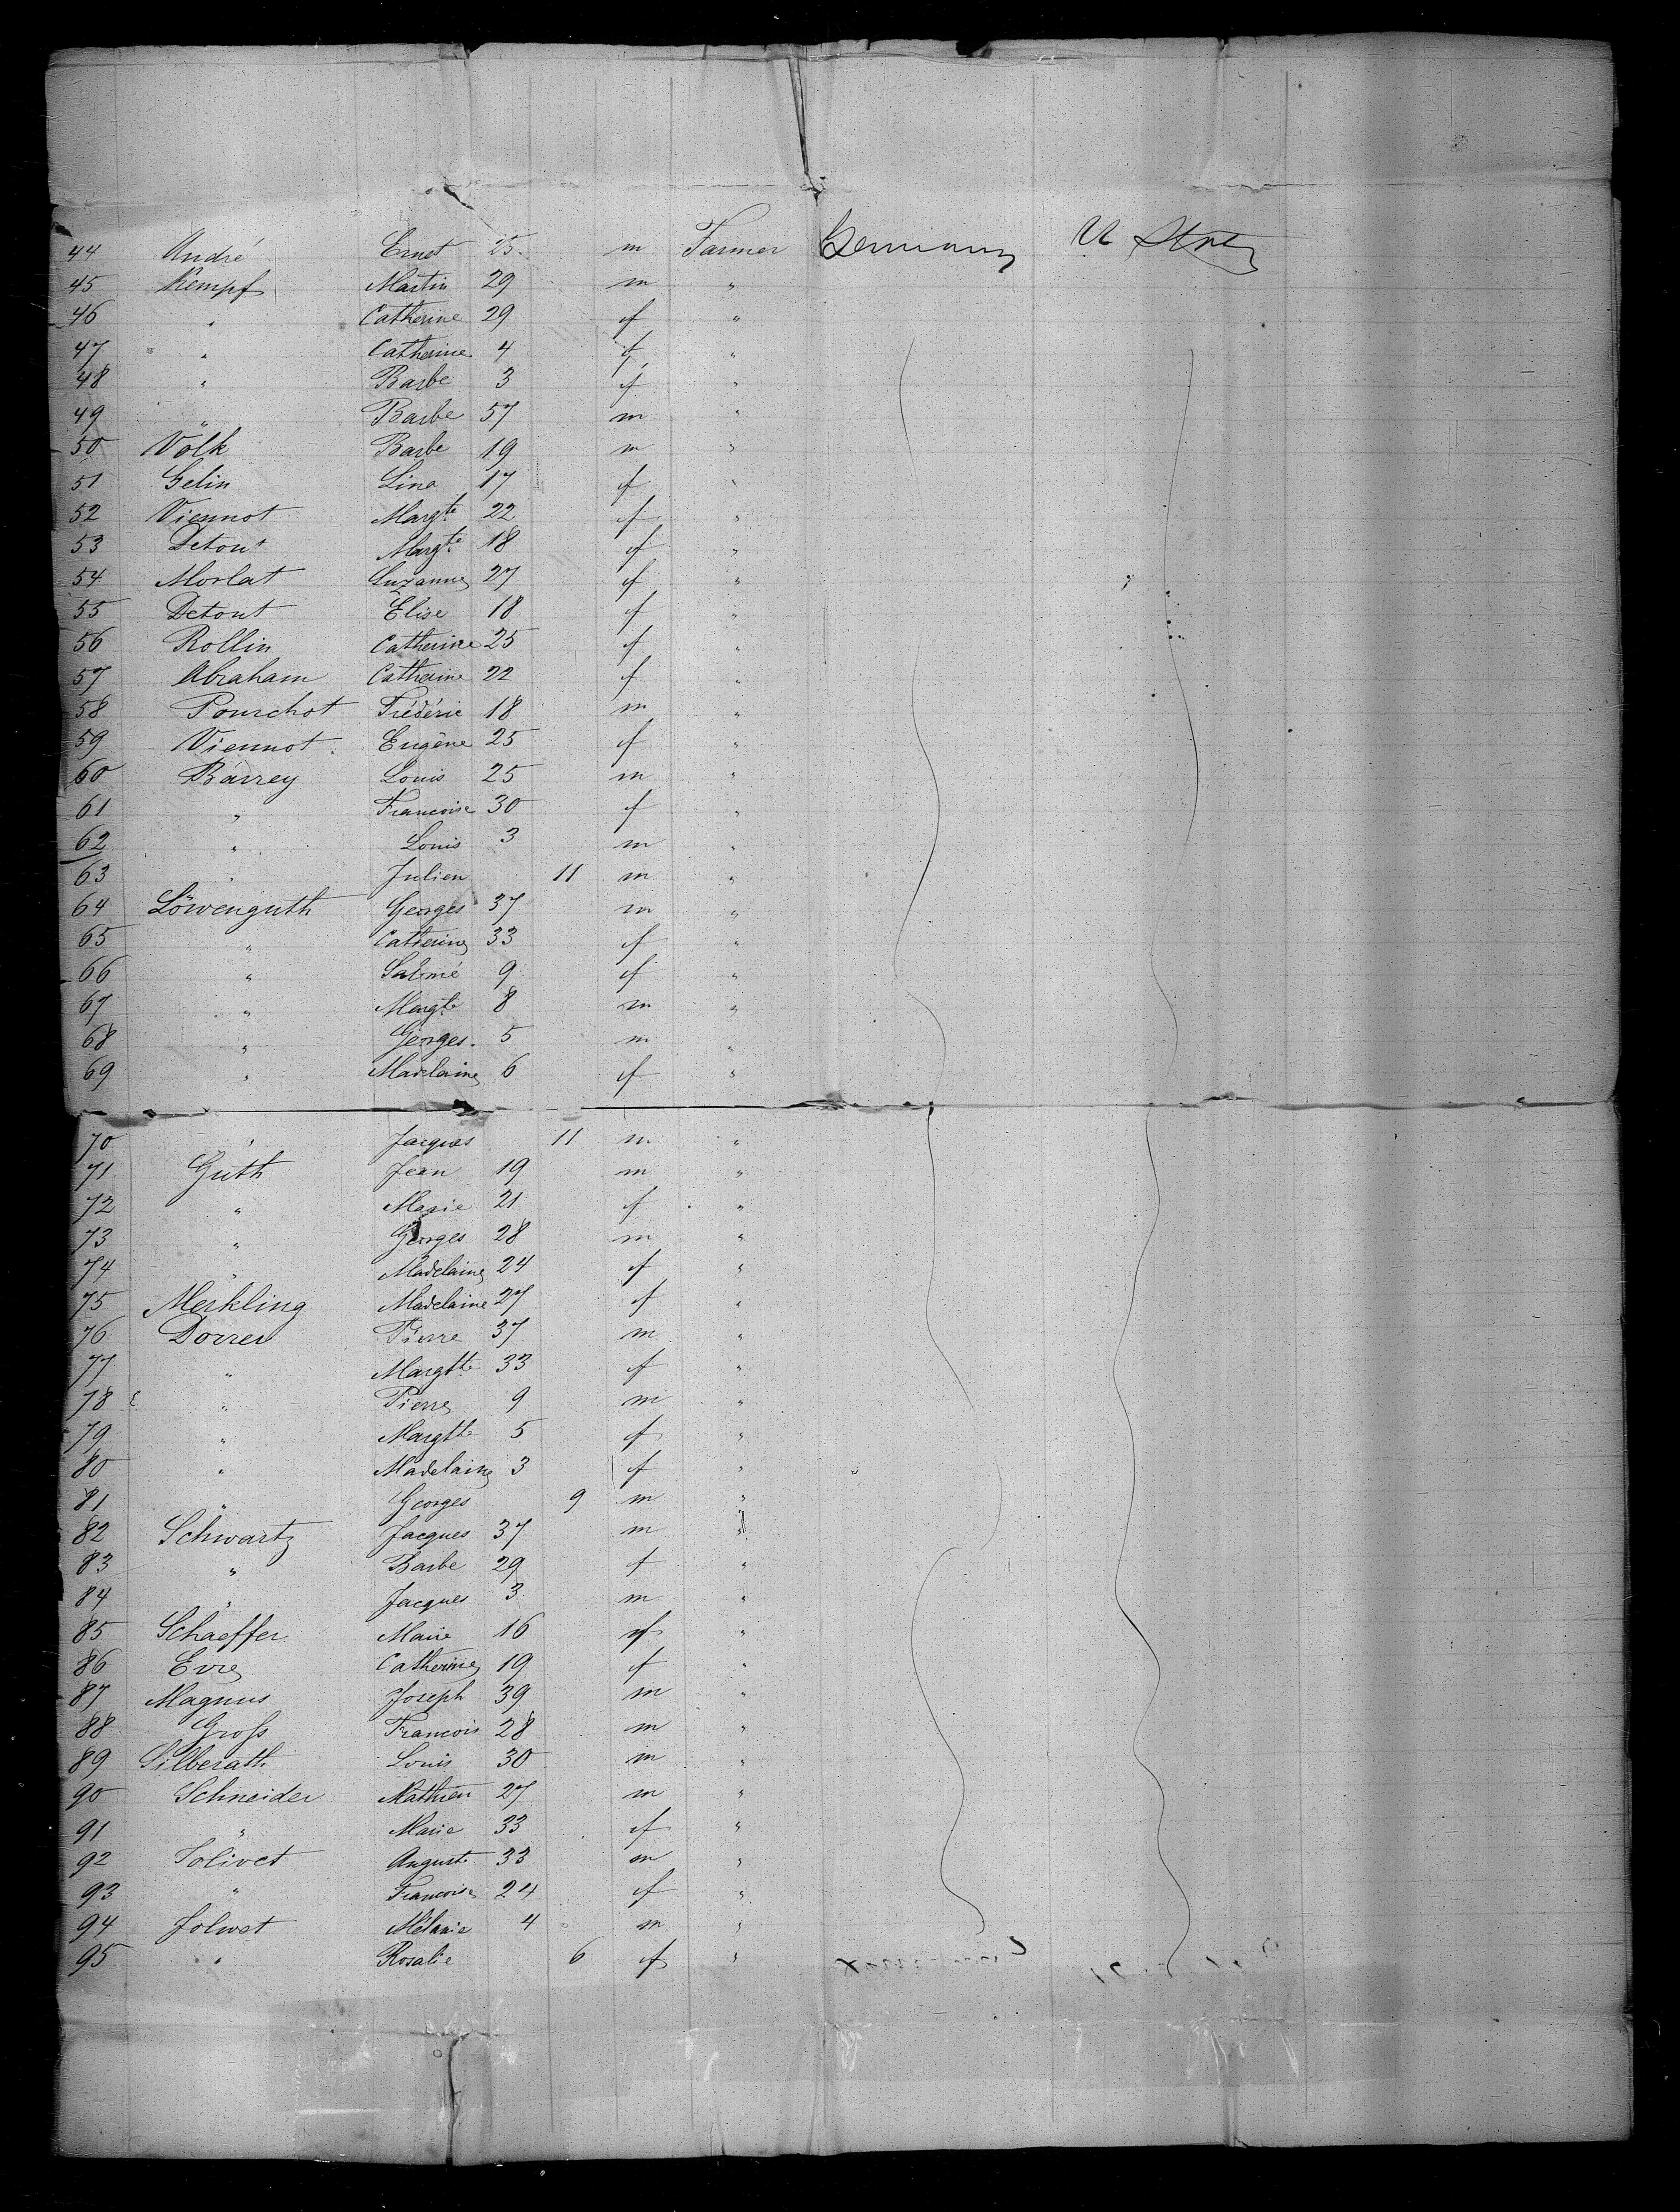 44 André Ernst 25 m Farmer Germany U States
45 Kempf Martin 29 m "
46 " Catherine 29 f "
47 " Catherine 4 f "
48 " Barbe 3 f "
49 " Barbe 57 m "
50 Völk Barbe 19 m "
51 Gelin Lina 17 f "
52 Viennot Margte 22 f "
53 Detout Margte 18 f "
54 Morlat Suzanne 27 f "
55 Detout Élise 18 f "
56 Rollin Catherine 25 f "
57 Abraham Catherine 22 f "
58 Pourchot Frédéric 18 m "
59 Viennot Eugène 25 f "
60 Barrey Louis 25 m "
61 " Francoise 30 f "
62 " Louis 3 m "
63 " Julien 11 m "
64 Löwenguth Georges 37 m "
65 " Catherine 33 f "
66 " Salomé 9 f "
67 " Margte 8 m "
68 " Georges 5 m "
69 " Madelaine 6 f "
70 " Jacques 11 m "
71 Guth Jean 19 m "
72 " Marie 21 f "
73 " Georges 28 m "
74 " Madelaine 24 f "
75 Merkling Madelaine 27 f "
76 Dorrer Pierre 37 m "
77 " Margtte 33 f "
78 " Pierre 9 m "
79 " Margtte 5 f "
80 " Madelaine 3 f "
81 " Georges 9 m "
82 Schwartz Jacques 37 m "
83 " Barbe 29 f "
84 " Jacques 3 m "
85 Schaeffer Marie 16 f "
86 Evre Catherine 19 f "
87 Magnus Joseph 39 m "
88 Groſs Francois 28 m "
89 Silberath Louis 30 m "
90 Schneider Mathieu 27 m "
91 " Marie 33 f "
92 Jolivet August 33 m "
93 " Francoise 24 f "
94 Jolivet Mélanie 4 m "
95 " Rosalie 6 f "